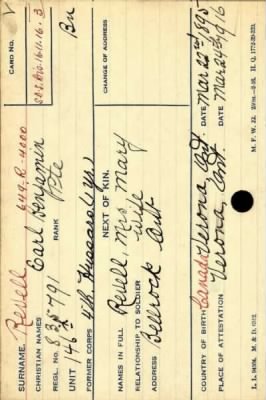 CARD NO.
S.O.S. Dis. 16.11.16. 3
SURNAME. Revell 649-R-4000
CHRISTIAN NAMES Earl Benjamin
REGL. NO. 835791 RANK Pte
UNIT 146th Bn
FORMER CORPS 4th Hussars (1 yr)
NEXT OF KIN.
CHANGE OF ADDRESS
NAMES IN FULL Revell, Mrs. Mary
RELATIONSHIP TO SOLDIER Wife
ADDRESS Bellrock Ont
COUNTRY OF BIRTH Canada Verona, Ont. DATE Mar 22nd 1895
PLACE OF ATTESTATION Verona, Ont. DATE Mar 24th 1916
L. L. M. & D.
M. F. W. 22.